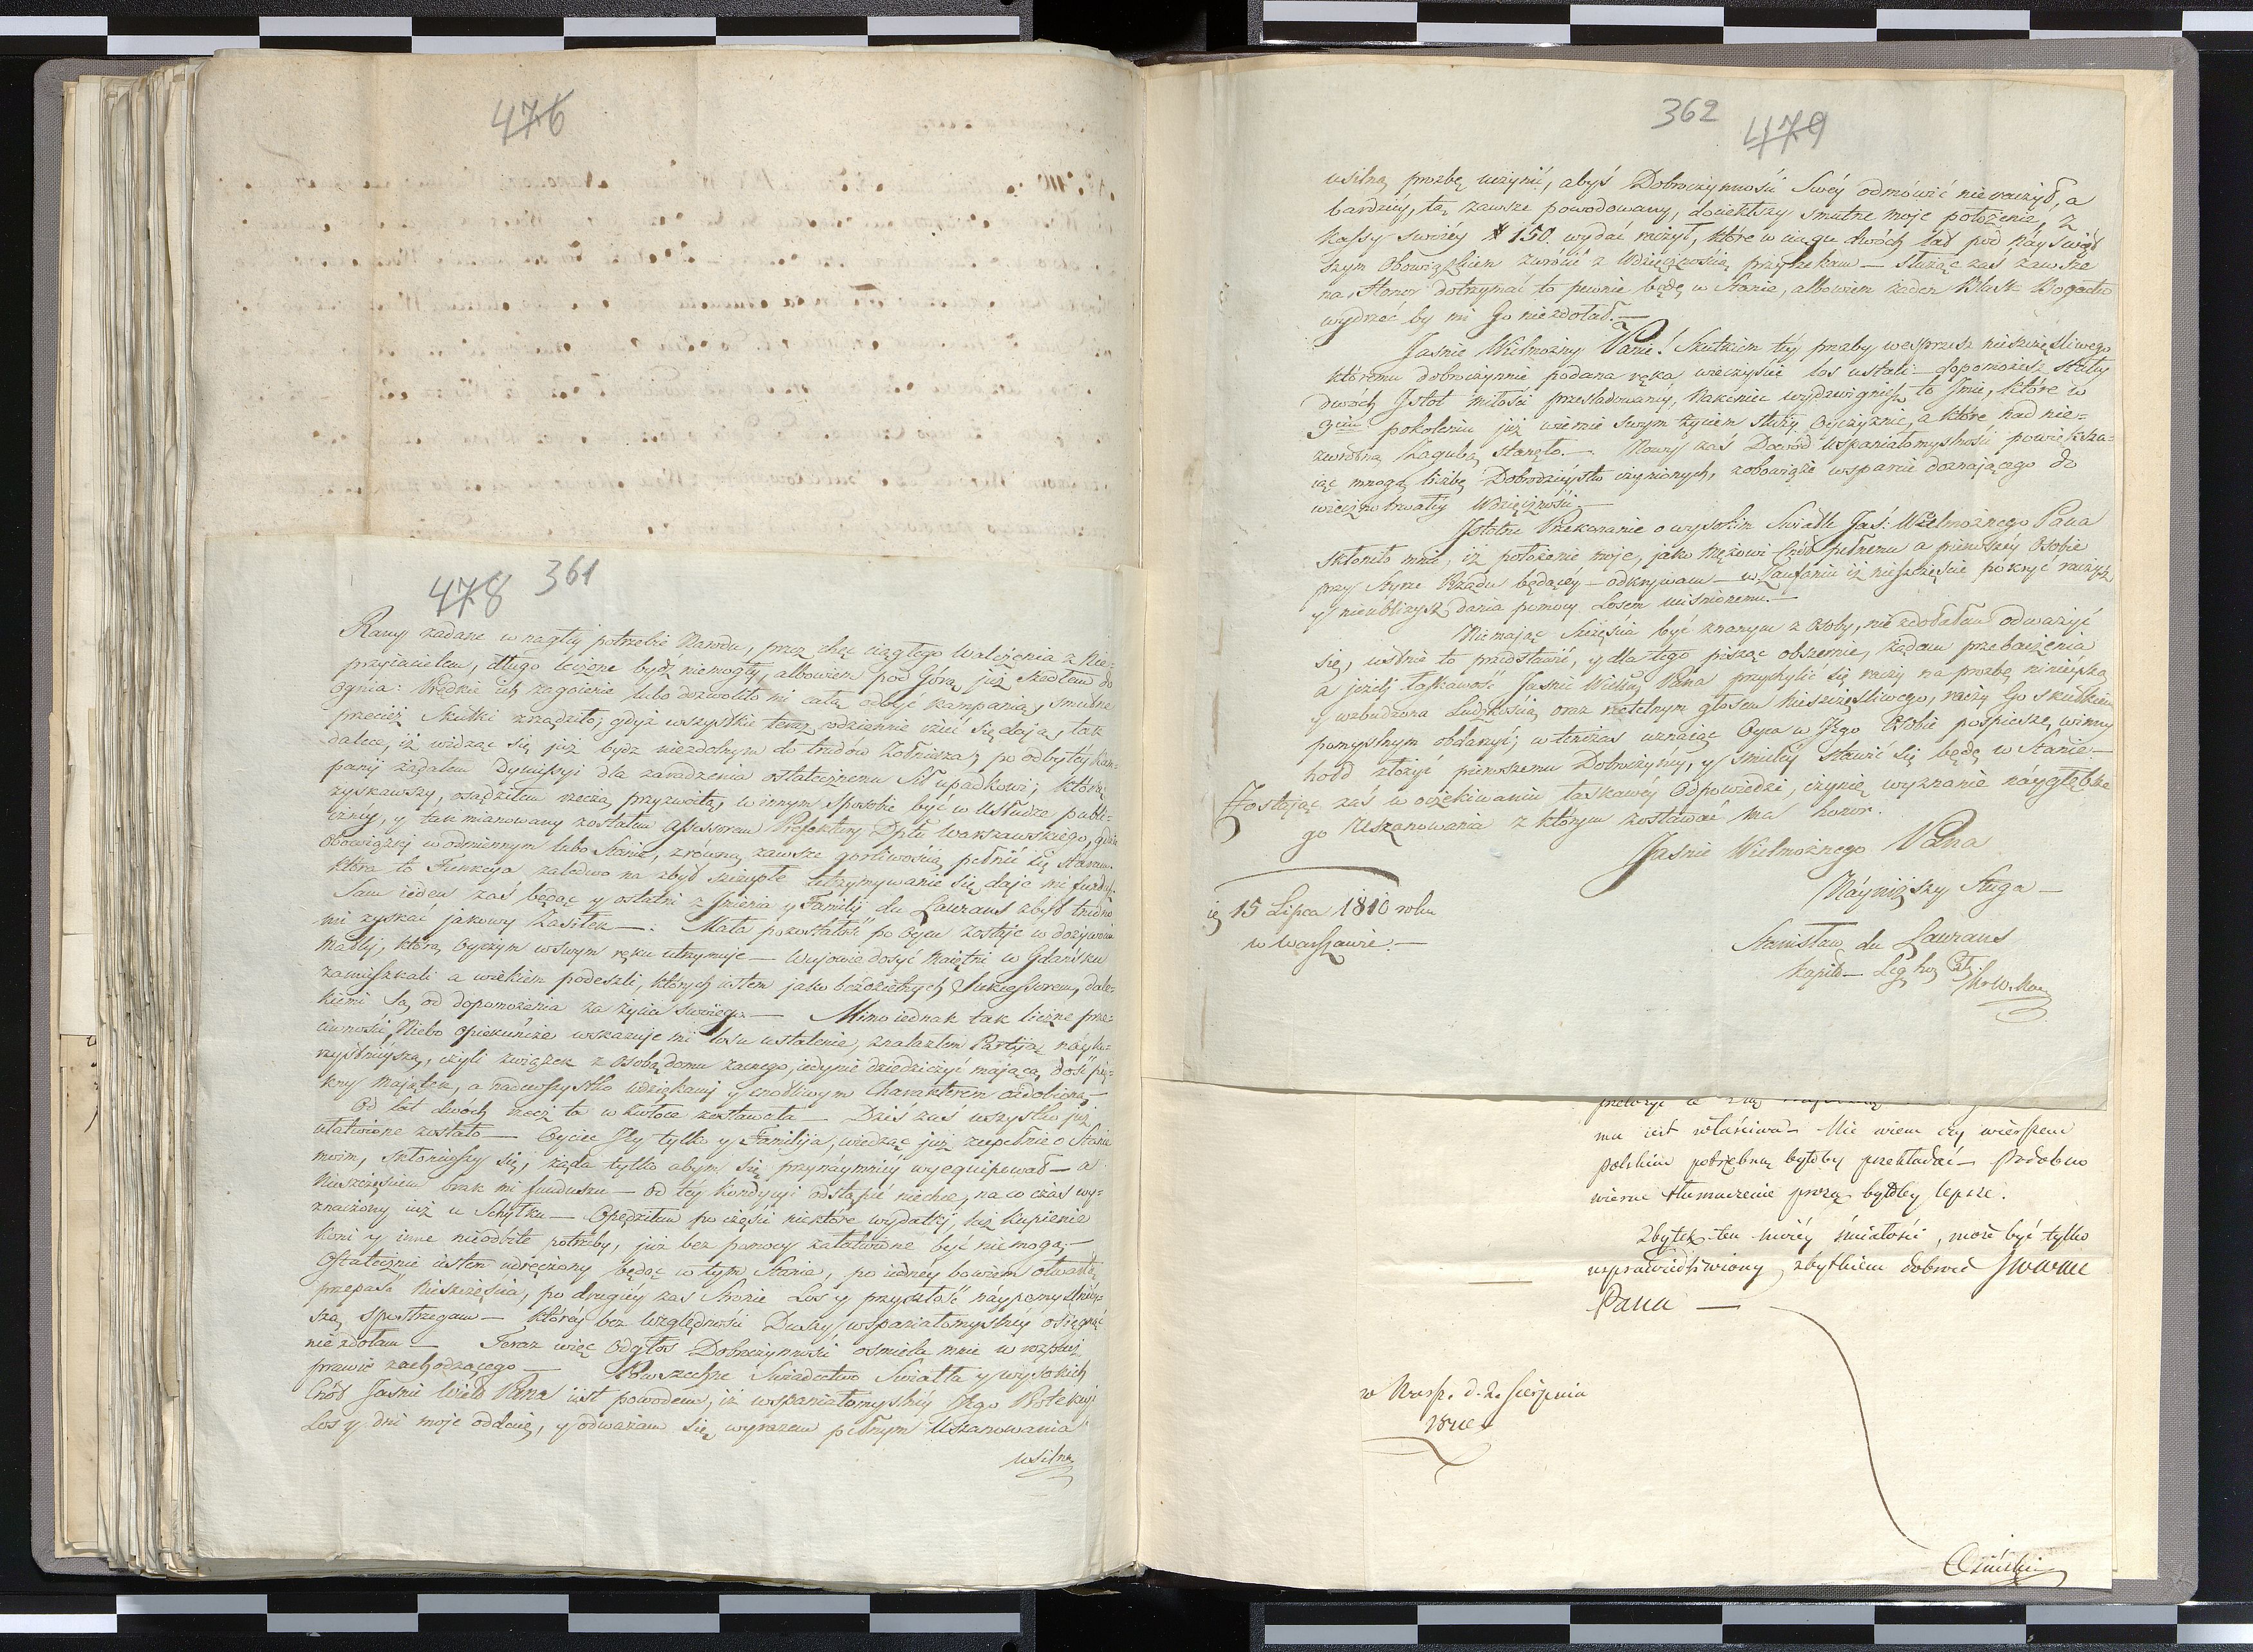 476
478 361
Rany zadane w nagłéy potrzebie Narodu, przez chęć ciągłego walczenia z Nie=
przyiacielem, długo leczone bydź niemogły, albowiem pod Górą już szedłem do
Ognia: Prędkie ich zagoienie lubo dozwoliło mi całą odbyć kampanią, smutne
przecięż Skutki zrządziło; gdyż wszystkie teraz codziennie czuć się dają, tak
dalece, iż widząc się już bydz niezdolnym do trudów Żołnierza; po odbytéy Kam=
panij żądałem Dymissyi dla zaradzenia ostatecznemu Sił upadkowi; którą
zyskawszy, osądziłem rzeczą przyzwoitą, w innym Sposobie być w Usłudze publi=
cznéy, y tak mianowany zostałem Assessorem Prefektury Dptu Warszawskiego, gdzie
Obowiązki w odmiennym lubo Stanie, z równą zawsze gorliwością pełnić się staram
która to Funkcya zaledwo na zbyt szczupłe utrzymywanie się daje mi fundusz.
Sam ieden zaś będąc y ostatni z Jmienia y Familij du Laurans zbyt trudno
mi zyskać jakowy Zasiłek —. Mała pozostałość po Oycu zostaje w dożywociu
Matki, którą Oyczym w swym ręku utrzymuje — Wujowie dosyć Maiętni w Gdańsku
zamieszkali a wiekiem podeszli, których iestem jako bezdzietnych Sukcessorem, dale=
kiemi są od dopomożenia za życia swoiego. — Mimo iednak tak liczne prze=
ciwności, Niebo opiekuńcze wskazuje mi losu ustalenie, znalazłem Partyją náyko=
rzystnieyszą, czyli związek z osobą domu zacnego, iedynie dziedziczyć mającą, dość pię=
kny Majątek, a nadewszystko wdziękami y cnotliwym Charakterem ozdobioną —
Od lat dwóch rzecz ta w zwłoce zostawała — Dziś zaś wszystko już
ułatwione zostało — Oyciec Jéy tylko y Familija, wiedząc już zupełnie o Stanie
moim, skłoniwszy się, żąda tylko abym się przynáymniéy wyequipował — a
Nieszczęsciem brak mi funduszu — od téy Kondycyi odstąpić niechcę, na co czas wy=
znaczony iuż u Schyłku — Opędziłem po części niektóre wydatki, lecz Kupienie
koni y inne nieodbite potrzeby, już bez pomocy załatwione być niemogą; —
Ostatecznie iestem udręczony będąc w tym Stanie, po iednéy bowiem otwartą
przepaść Nieszczęścia, po drugiéy zaś Stronie Los y przyszłość náypomyślniéy=
szą spostrzegam — któréy bez względności Duszy wspaniałomyślnéy osięgnąć
nie zdołam — Teraz więc Odgłos Dobroczynności ośmiela mnie w rozpaczy
prawie zachodzącego — Powszechne Świadectwo Światła y wysokich
Cnót Jaśnie Wielo Pana iest powodem, iż wspaniałomyślnéy Jego Protekcyi
Los y dni moje oddaię, y odważam się wyrazem pełnym Uszanowania
usilną
362 479
usilną prozbę uczynić, abyś Dobroczynności Swéy odmówić nie raczył, a
bardziéy, tą zawsze powodowany, dociekłszy smutne moje położenie, z
Kassy swoiéy # 150. wydać raczył, które w ciągu dwóch lat pod Náyświęt
szym Obowiązkiem zwrócić z Wdzięcznością przyrzekam — służąc zaś zawsze
na Honor dotrzymać to pewnie będę w Stanie, albowiem żaden Blask Bogactw
wydrzeć by mi Go niezdołał. —
Jaśnie Wielmożny Panie! Skutkiem téy prozby wesprzesz nieszczęśliwego
któremu dobroczynnie podana ręka wieczyście los ustali — dopomożesz
dwoch Jstot miłości prześladowanéy, Nakoniec wydzwigniesz to Jmie, które w
3cim pokoleniu już wiernie swym życiem służy Oyczyznie, a które nad nie=
zwrotną Zagubą stanęło. — Nowy zaś Dowód Wspaniałomyślności powiększa=
iąc mnogą liczbę Dobrodzieystw czynionych, zobowiąże wsparcie doznającego do
wiecznotrwałéy Wdzięczności —
Jstotne Przekonanie o wysokim Świetle Jaś: Wielmożnego Pana
skłoniło mnie, iż położenie moje, jako Mężowi Cnót pełnemu a pierwszéy Osobie
przy Styrze Rządu będącéy — odkrywam — w Zaufaniu iż nieszczęście pokryć raczysz
y nieubliżysz dania pomocy Losem uciśnionemu. —
Niemając Szczęścia być znanym z Osoby, nie zdołałem odważyć
się, ustnie to przedstawić, y dla tego pisząc obszernie, żądam przebaczenia
a jeżeli łaskawość Jaśnie Wielmo Pana przychylić się raczy na prozbę ninieyszą
y wzbudzona Ludzkością oraz rzetelnym głosem Nieszczęśliwego, raczy Go skutkiem
pomyślnym obdarzyć, wtenczas uznaiąc Oyca w Jego Osobie pospieszę winny
hołd złożyć pierwszemu Dobroczyńcy, y śmieléy stawić się będę w Stanie —
Zostając zaś w oczekiwaniu łaskawéy Odpowiedzi, czynię wyznanie náygłębsze
go Uszanowania z którym zostawać ma honor.
Jaśnie Wielmożnego Pana
Náyniższy Sługa —
15 Lipca 1810 roku
w Warszawie. —
Stanisław du Laurans
Kapit —
mu iest właściwa — Nie wiem czy wierszem
polskim potrzebną byłoby przekładać — Podobno
wierne tłumaczenie prozą byłoby lepsze.
Zbytek ten moiéy śmiałości, może być tylko
usprawiedliwiony zbytkiem dobroci JWWM
Pana —
w Warsz. d. 2. Sierpnia
1810
Osiński